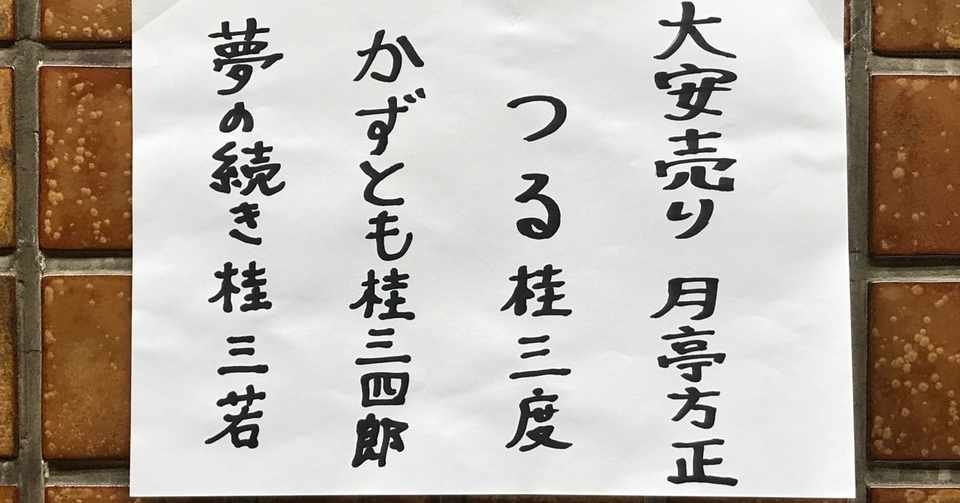 大安売り 月亭方正
つる 桂三度
かずとも 桂三四郎
夢の続き 桂三若